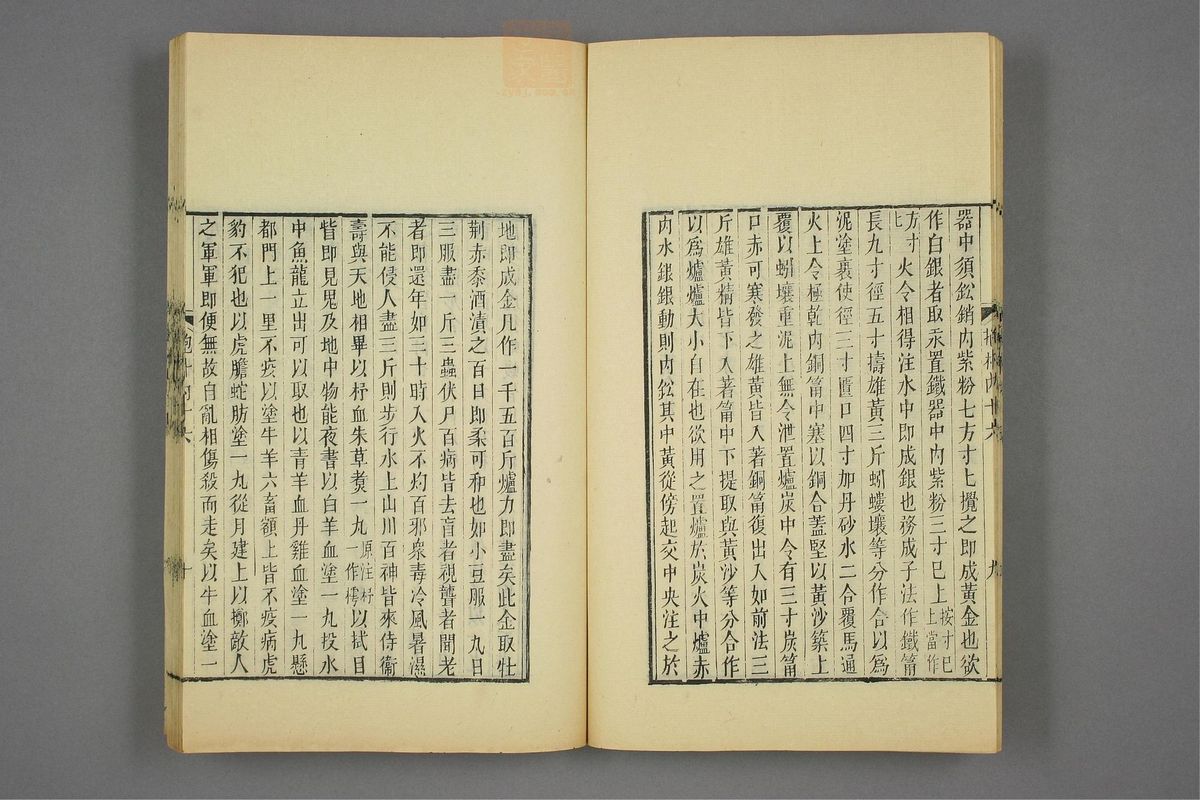 器中須鉛銷内紫粉七方寸匕攪之即成黃金也欲
作白銀者取汞置鐵器中内紫粉三寸巳上按寸巳上當作
方寸匕火令相得注水中即成銀也務成子法作鐵筩
長九寸徑五寸擣雄黃三斤蚓螻壤等分作合以爲
泥塗裹使徑三寸匱口四寸加丹砂水二合覆馬通
火上令極乾内銅筩中塞以銅合蓋堅以黃沙築上
覆以蚓壤重泥上無令泄置爐炭中令有三寸炭筩
口赤可寒發之雄黃皆入著銅筩復出入如前法三
斤雄黃精皆下入著筩中下提取與黃沙等分合作
以爲爐爐大小自在也欲用之置爐於炭火中爐赤
内水銀銀動則内鉛其中黃從傍起交中央注之於
抱朴内十六
九
地即成金凡作一千五百斤爐力即盡矣此金取牡
荆赤黍酒漬之百日即柔可和也如小豆服一丸日
三服盡一斤三蟲伏尸百病皆去盲者視聾者聞老
者即還年如三十時入火不灼百邪衆毒冷風暑濕
不能侵人盡三斤則步行水上山川百神皆來侍衛
壽與天地相畢以杼血朱草煑一丸原注杼一作樗以拭目
眥即見鬼及地中物能夜書以白羊血塗一丸投水
中魚龍立出可以取也以青羊血丹雞血塗一丸懸
都門上一里不疫以塗牛羊六畜額上皆不疫病虎
豹不犯也以虎膽蛇肪塗一丸從月建上以擲敵人
之軍軍即便無故自亂相傷殺而走矣以牛血塗一
抱朴内十六
十